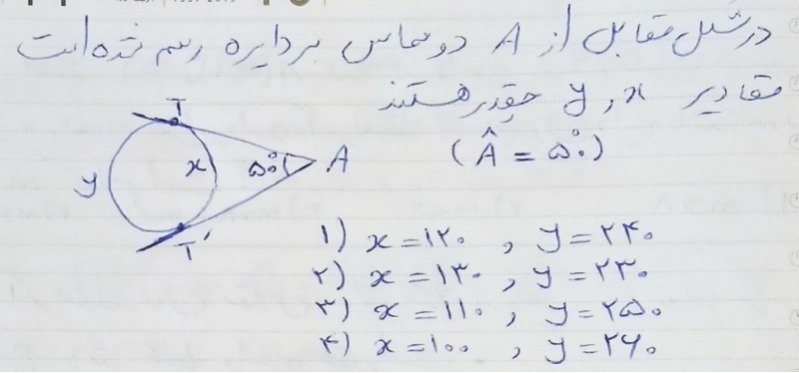 در شکل مقابل از A دو مماس بر دایره رسم شده است
مقادیر x و y چقدر هستند
(Â = ۵۰°)
T
y
x
۵۰°
A
T'
۱) x = ۱۲۰ , y = ۲۴۰
۲) x = ۱۳۰ , y = ۲۳۰
۳) x = ۱۱۰ , y = ۲۵۰
۴) x = ۱۰۰ , y = ۲۶۰